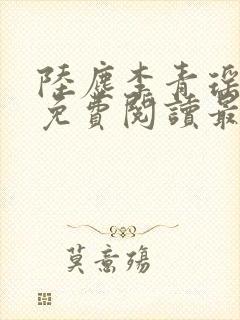 陸塵李青瑶
免費閱讀最
莫意殤